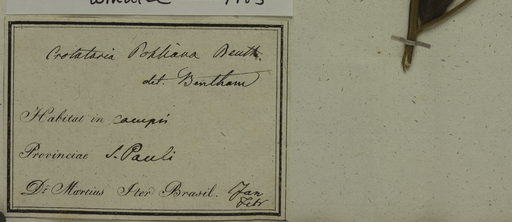 Crotalaria Pohliana Benth.
det. Bentham
Habitat in campis
Provinciae S. Pauli
Dr. Martius Iter Brasil. Jan
Febr